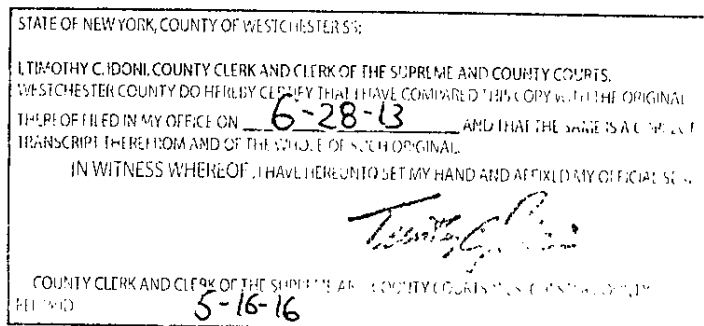 STATE OF NEW YORK, COUNTY OF WESTCHESTER SS:
I, TIMOTHY C. IDONI, COUNTY CLERK AND CLERK OF THE SUPREME AND COUNTY COURTS,
WESTCHESTER COUNTY DO HEREBY CERTIFY THAT I HAVE COMPARED THIS COPY WITH THE ORIGINAL
THEREOF FILED IN MY OFFICE ON 6-28-13 AND THAT THE SAME IS A CORRECT
TRANSCRIPT THEREFROM AND OF THE WHOLE OF SUCH ORIGINAL.
IN WITNESS WHEREOF, I HAVE HEREUNTO SET MY HAND AND AFFIXED MY OFFICIAL
COUNTY CLERK AND CLERK OF THE SUPREME AND COUNTY COURTS
5-16-16